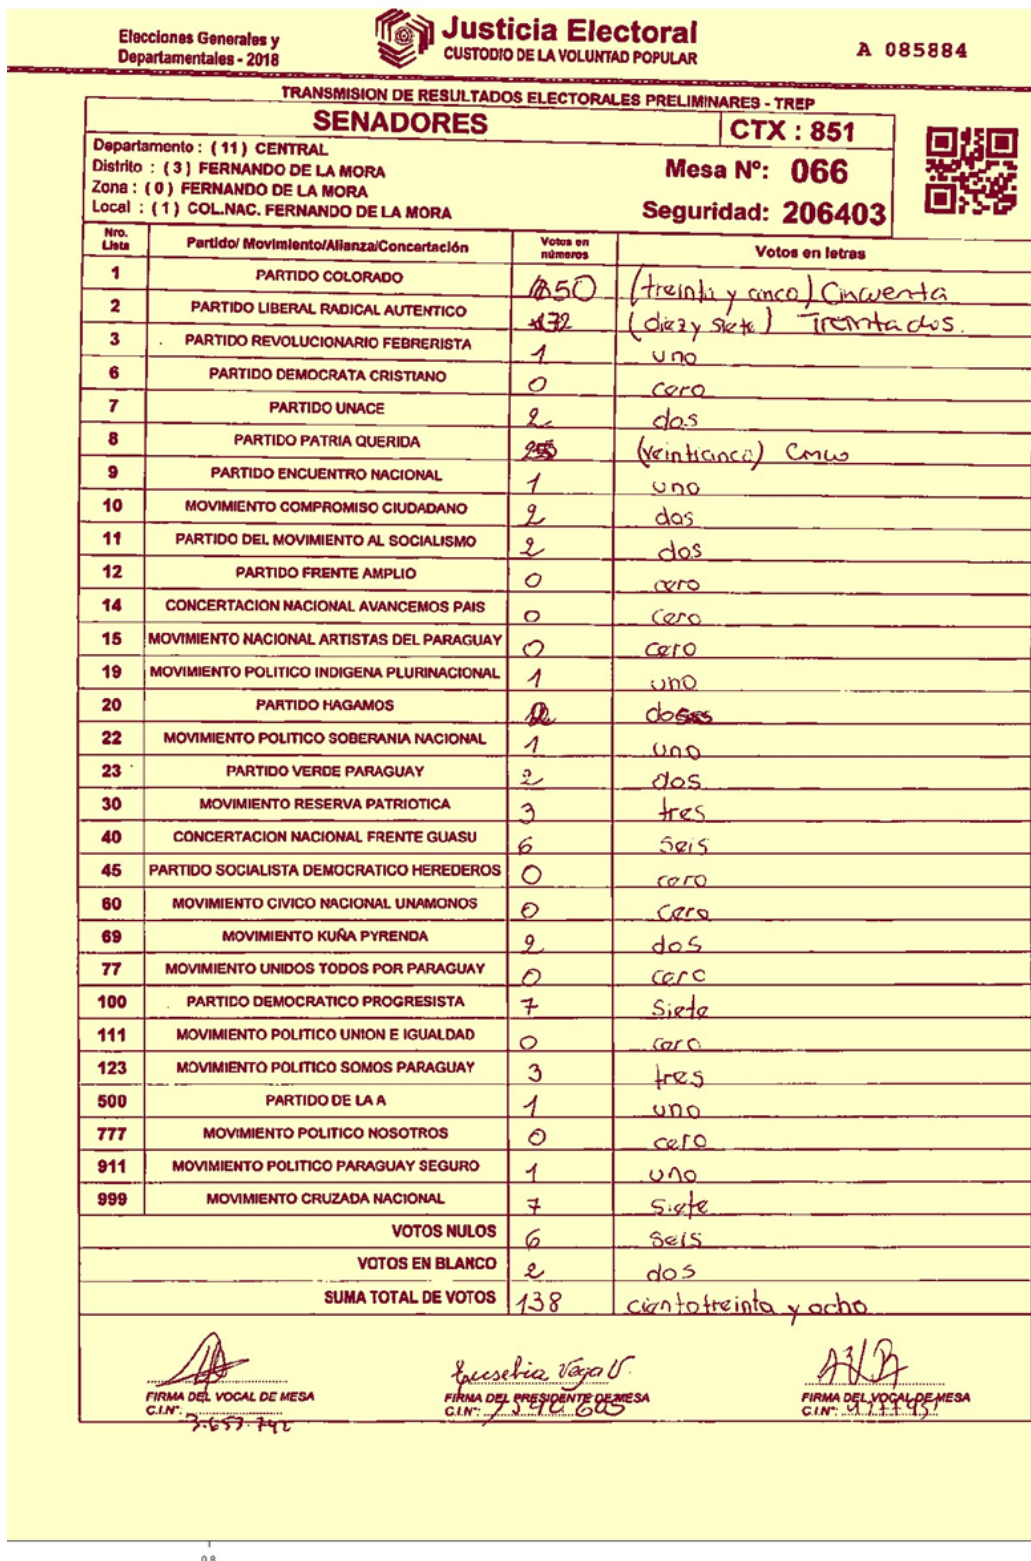 Elecciones Generales y
Departamentales - 2018
Justicia Electoral
CUSTODIO DE LA VOLUNTAD POPULAR
A 085884
TRANSMISION DE RESULTADOS ELECTORALES PRELIMINARES - TREP
SENADORES CTX : 851
Departamento : ( 11 ) CENTRAL
Distrito : ( 3 ) FERNANDO DE LA MORA
Zona : ( 0 ) FERNANDO DE LA MORA
Local : ( 1 ) COL.NAC. FERNANDO DE LA MORA
Mesa Nº: 066
Seguridad: 206403
Nro. Lista Partido/ Movimiento/Alianza/Concertación Votos en números Votos en letras
1 PARTIDO COLORADO 50 (treinta y cinco) Cincuenta
2 PARTIDO LIBERAL RADICAL AUTENTICO (diez y siete) Treinta dos.
3 PARTIDO REVOLUCIONARIO FEBRERISTA 1 uno
6 PARTIDO DEMOCRATA CRISTIANO 0 cero
7 PARTIDO UNACE 2 dos
8 PARTIDO PATRIA QUERIDA (veinticinco) Cinco
9 PARTIDO ENCUENTRO NACIONAL 1 uno
10 MOVIMIENTO COMPROMISO CIUDADANO 2 dos
11 PARTIDO DEL MOVIMIENTO AL SOCIALISMO 2 dos
12 PARTIDO FRENTE AMPLIO 0 cero
14 CONCERTACION NACIONAL AVANCEMOS PAIS 0 cero
15 MOVIMIENTO NACIONAL ARTISTAS DEL PARAGUAY 0 cero
19 MOVIMIENTO POLITICO INDIGENA PLURINACIONAL 1 uno
20 PARTIDO HAGAMOS 2 dos
22 MOVIMIENTO POLITICO SOBERANIA NACIONAL 1 uno
23 PARTIDO VERDE PARAGUAY 2 dos
30 MOVIMIENTO RESERVA PATRIOTICA 3 tres
40 CONCERTACION NACIONAL FRENTE GUASU 6 seis
45 PARTIDO SOCIALISTA DEMOCRATICO HEREDEROS 0 cero
60 MOVIMIENTO CIVICO NACIONAL UNAMONOS 0 cero
69 MOVIMIENTO KUÑA PYRENDA 2 dos
77 MOVIMIENTO UNIDOS TODOS POR PARAGUAY 0 cero
100 PARTIDO DEMOCRATICO PROGRESISTA 7 Siete
111 MOVIMIENTO POLITICO UNION E IGUALDAD 0 cero
123 MOVIMIENTO POLITICO SOMOS PARAGUAY 3 tres
500 PARTIDO DE LA A 1 uno
777 MOVIMIENTO POLITICO NOSOTROS 0 cero
911 MOVIMIENTO POLITICO PARAGUAY SEGURO 1 uno
999 MOVIMIENTO CRUZADA NACIONAL 7 Siete
VOTOS NULOS 6 Seis
VOTOS EN BLANCO 2 dos
SUMA TOTAL DE VOTOS 138 ciento treinta y ocho
Eusebia Vega V.
FIRMA DEL VOCAL DE MESA FIRMA DEL PRESIDENTE DE MESA FIRMA DEL VOCAL DE MESA
C.I.Nº: 3.657.742 C.I.Nº: C.I.Nº:
0.8